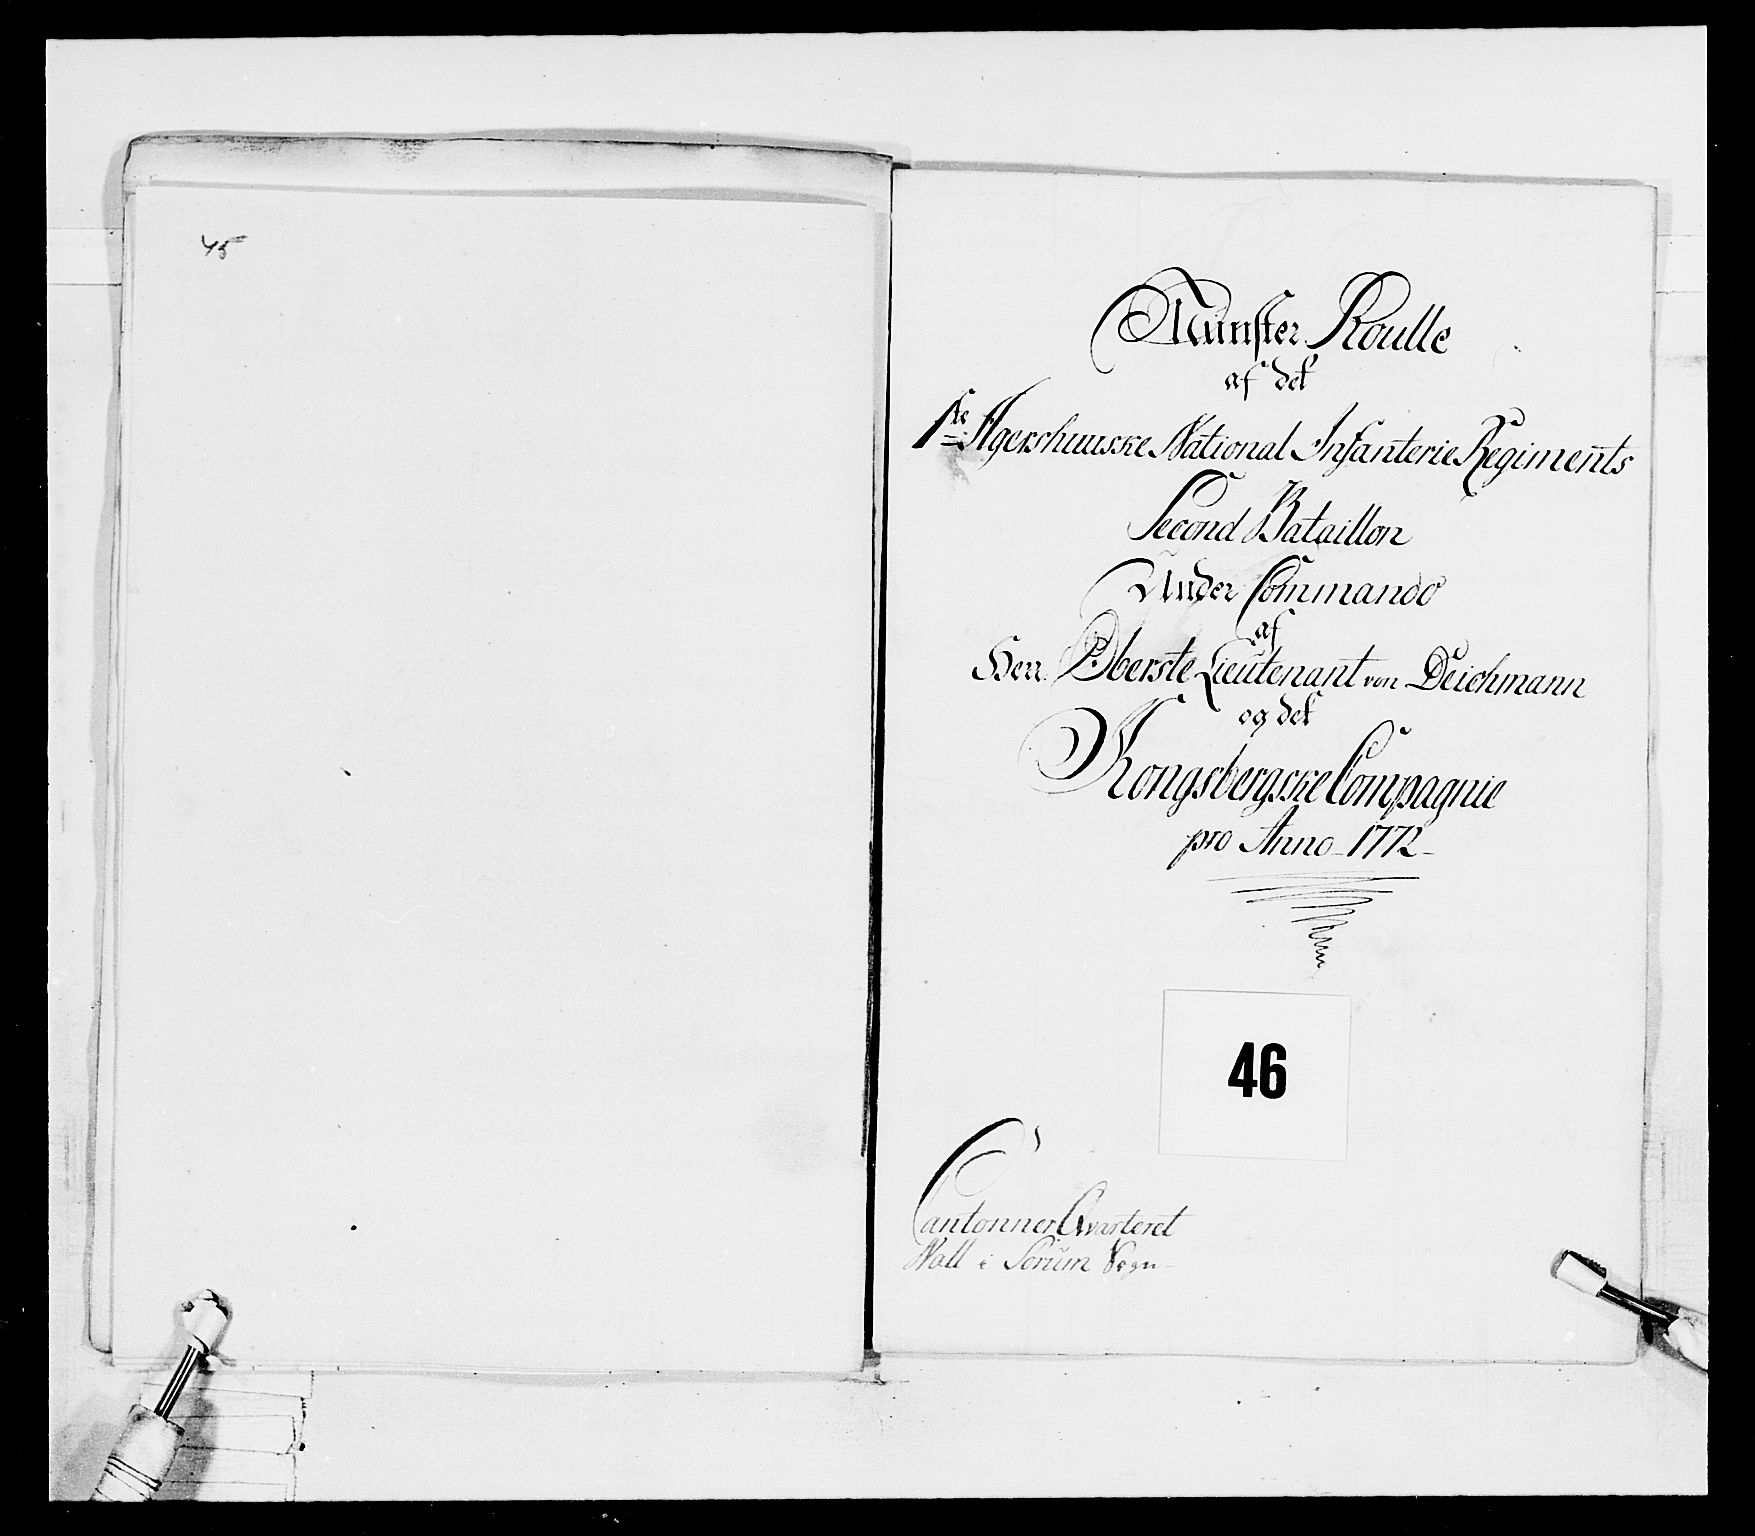 45
Munster Roulle
af det
1ste Agershuuske National Infanterie Regiments
Second Bataillon
Under Commando
af
Herr Oberste Lieutenant von Deichmann
og det
Kongsbergske Compagnie
pro Anno 1772
46
Cantonner Qvarteret
Wall i Sorum Sogn